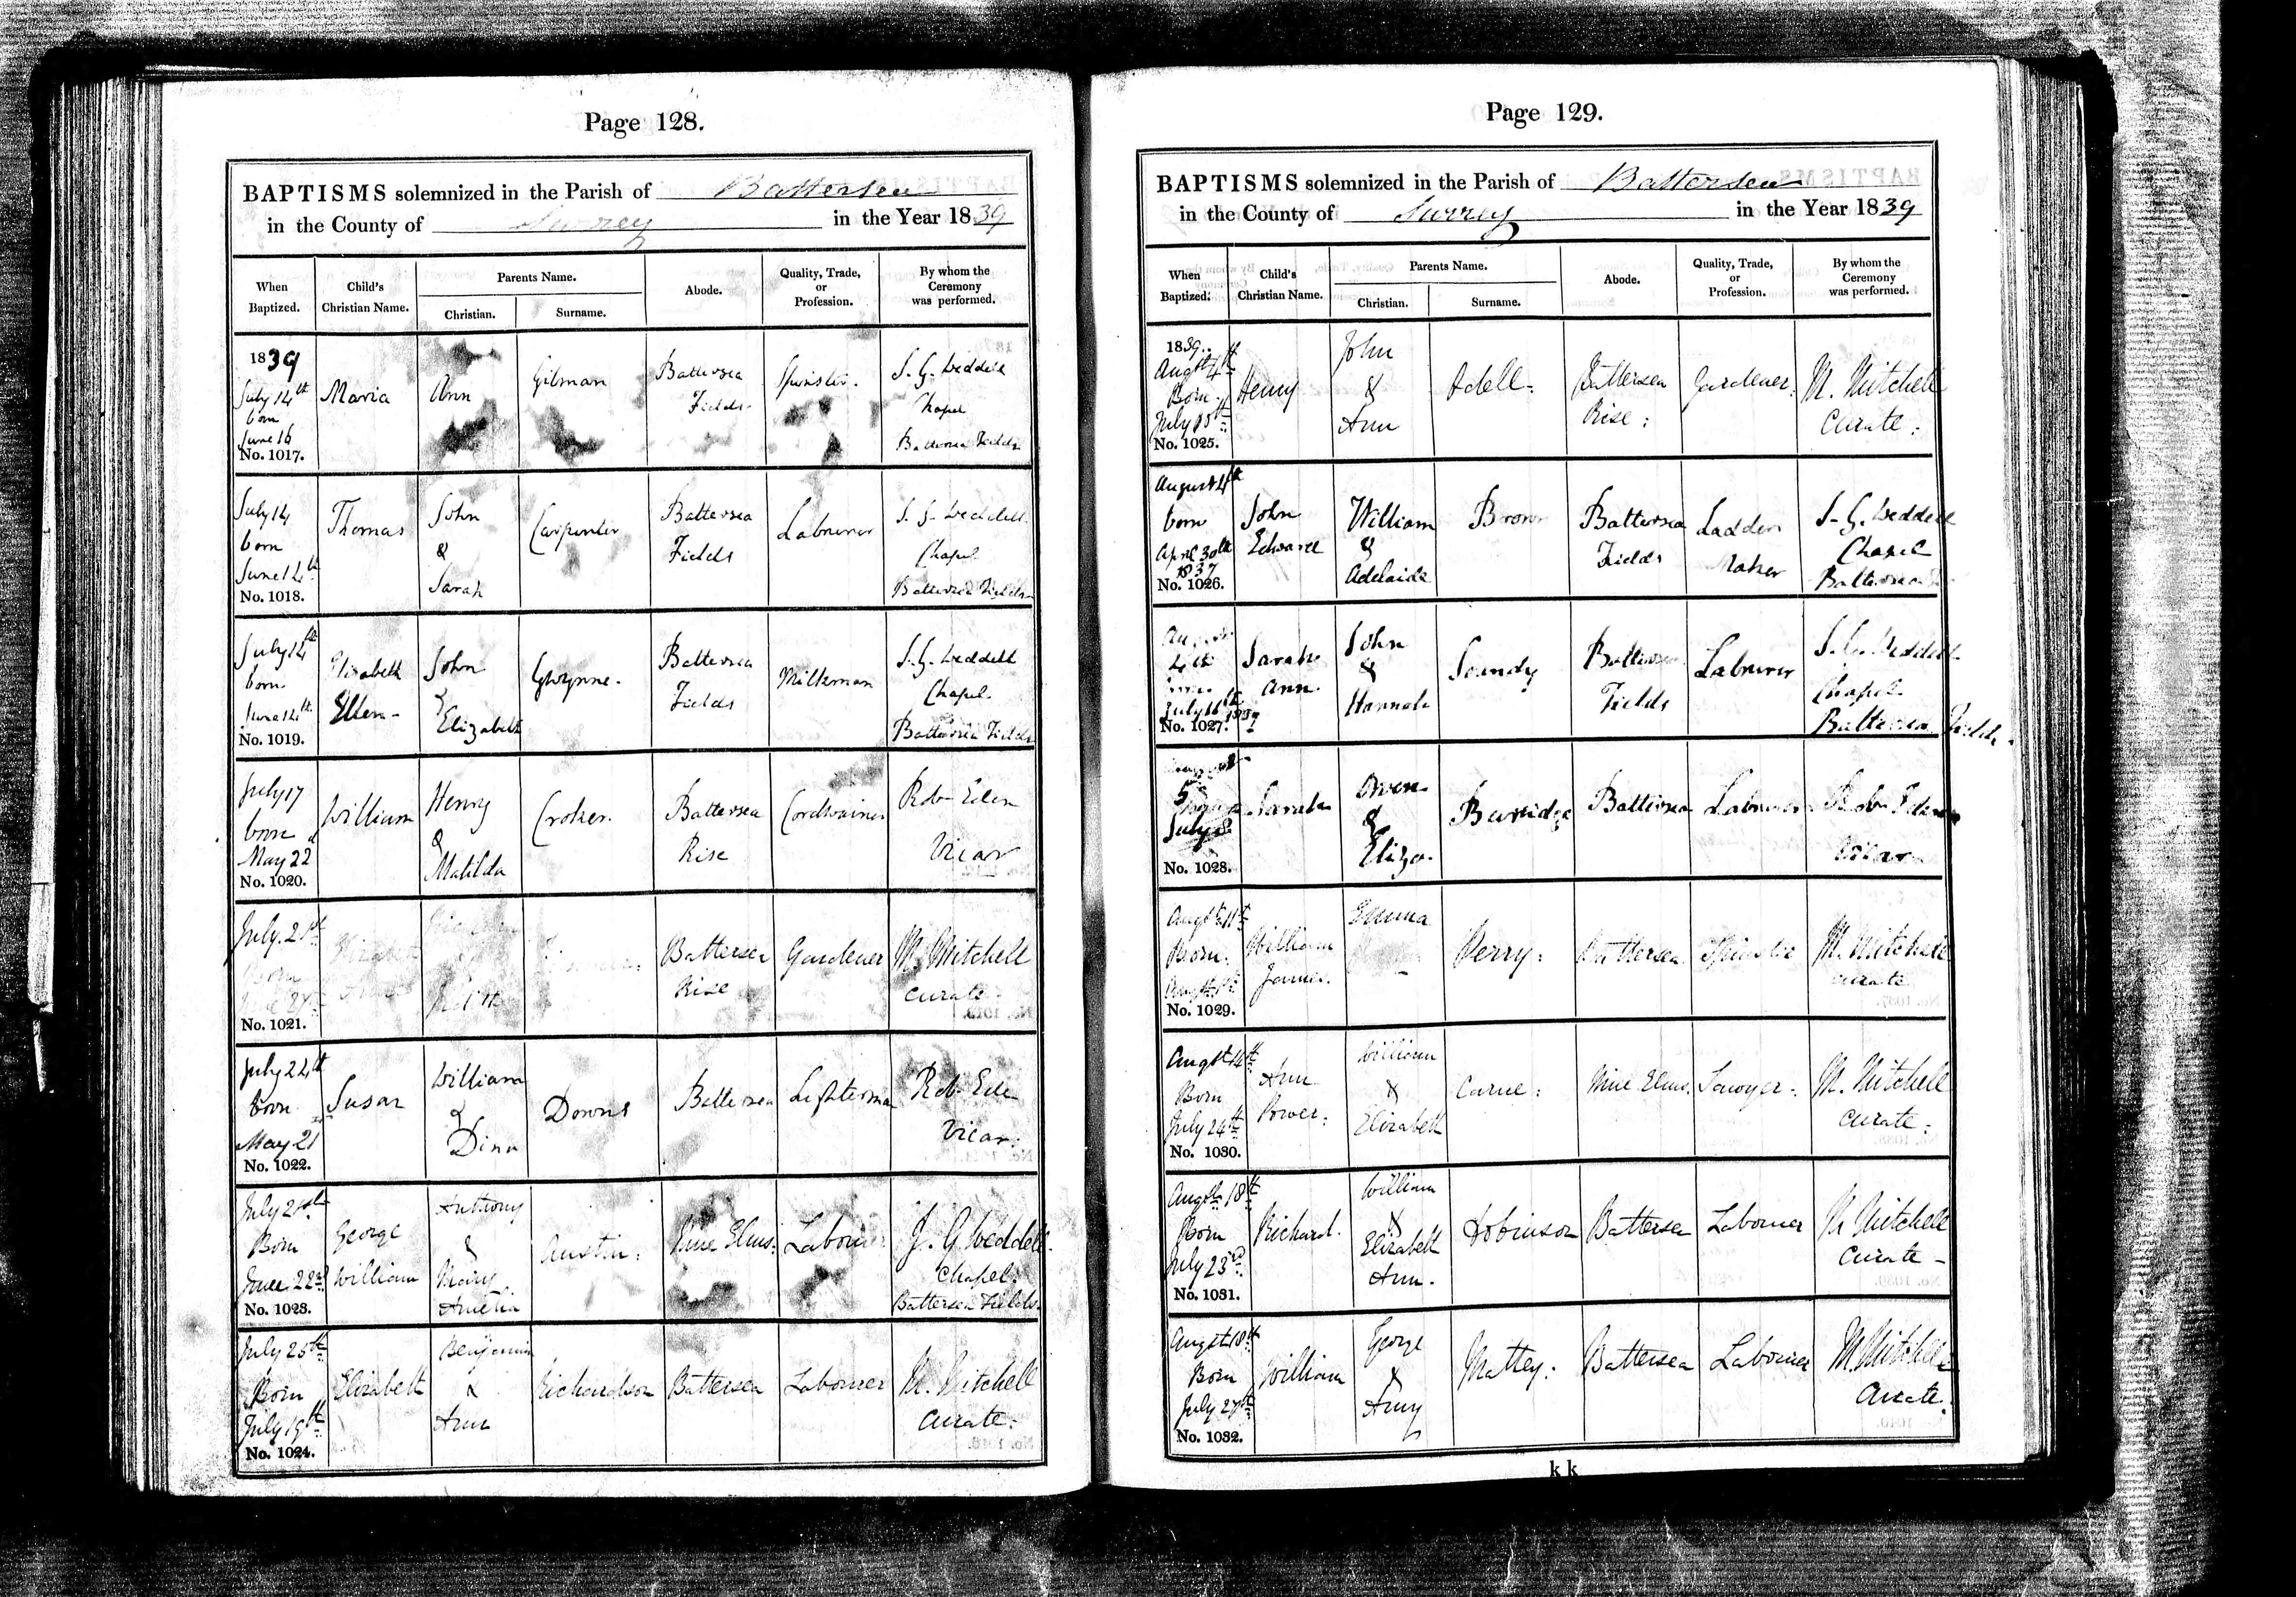 Page 128.
BAPTISMS solemnized in the Parish of Battersea
in the County of Surrey in the Year 1839
When Baptized.
Child's Christian Name.
Parents Name.
Christian.
Surname.
Abode.
Quality, Trade, or Profession.
By whom the Ceremony was performed.
1839
July 14th
born
June 16
No. 1017.
Maria
Ann
Gilman
Battersea
Fields
Spinster.
J. G. Weddell
Chapel
Battersea Fields
July 14
born
June 14th
No. 1018.
Thomas
John
&
Sarah
Carpenter
Battersea
Fields
Labourer
J. G. Weddell
Chapel
Battersea Fields
July 14th
born
June 14th
No. 1019.
Elizabeth
Ellen
John
&
Elizabeth
Gwynne
Battersea
Fields
Milkman
J. G. Weddell
Chapel
Battersea Fields
July 17
born
May 22
No. 1020.
William
Henry
&
Matilda
Croker
Battersea
Rise
Cordwainer
Robt Eden
Vicar
July 21st
No. 1021.
Battersea
Rise
Gardener
M. Mitchell
Curate
July 24th
born
May 21
No. 1022.
Susan
William
&
Downs
Battersea
Lighterman
Robt Eden
Vicar
July 21st
Born
June 22nd
No. 1023.
George
William
Anthony
&
Mary
Amelia
Austin:
Nine Elms:
Labourer
J. G Weddell
Chapel:
Battersea Fields.
July 25th
Born
July 19th
No. 1024.
Elizabeth
Benjamin
&
Ann
Richardson
Battersea
Labourer
M. Mitchell
Curate:
Page 129.
BAPTISMS solemnized in the Parish of Battersea
in the County of Surrey in the Year 1839
When Baptized.
Child's Christian Name.
Parents Name.
Christian.
Surname.
Abode.
Quality, Trade, or Profession.
By whom the Ceremony was performed.
1839.
Augt 4th
Born
No. 1025.
Henry
John
&
Ann
Adell:
Battersea
Rise:
Gardener:
M. Mitchell
Curate:
August 4th
born
April 30th
1837
No. 1026.
John
Edward
William
&
Adelaide
Brown
Battersea
Fields
Ladder
Maker
J. G. Weddell
Chapel
Battersea
4th
July 16th 1839
No. 1027.
Sarah
Ann
John
&
Hannah
Soundy
Battersea
Fields
Labourer
J. G. Weddell
Chapel
Battersea Fields
5
July
No. 1028.
Sarah
Owen
&
Eliza
Burridge
Battersea
Labourer
Robt Eden
Vicar
Augt 11th
Born:
No. 1029.
William
James.
Emma
Perry:
Battersea
Spinster
M. Mitchell
Curate
Augst 14th
Born
July 24th
No. 1030.
Ann
Power:
William
&
Elizabeth
Carne:
Nine Elms.
Sawyer.
M. Mitchell
Curate:
Augt 18th
Born
July 23rd
No. 1031.
Richard.
William
&
Elizabeth
Ann.
Battersea
Labourer
M Mitchell
Curate
Augst 18th
Born
July 27th
No. 1032.
William
George
&
Amy
Mattey:
Battersea
Labourer
M. Mitchell
Curate.
kk